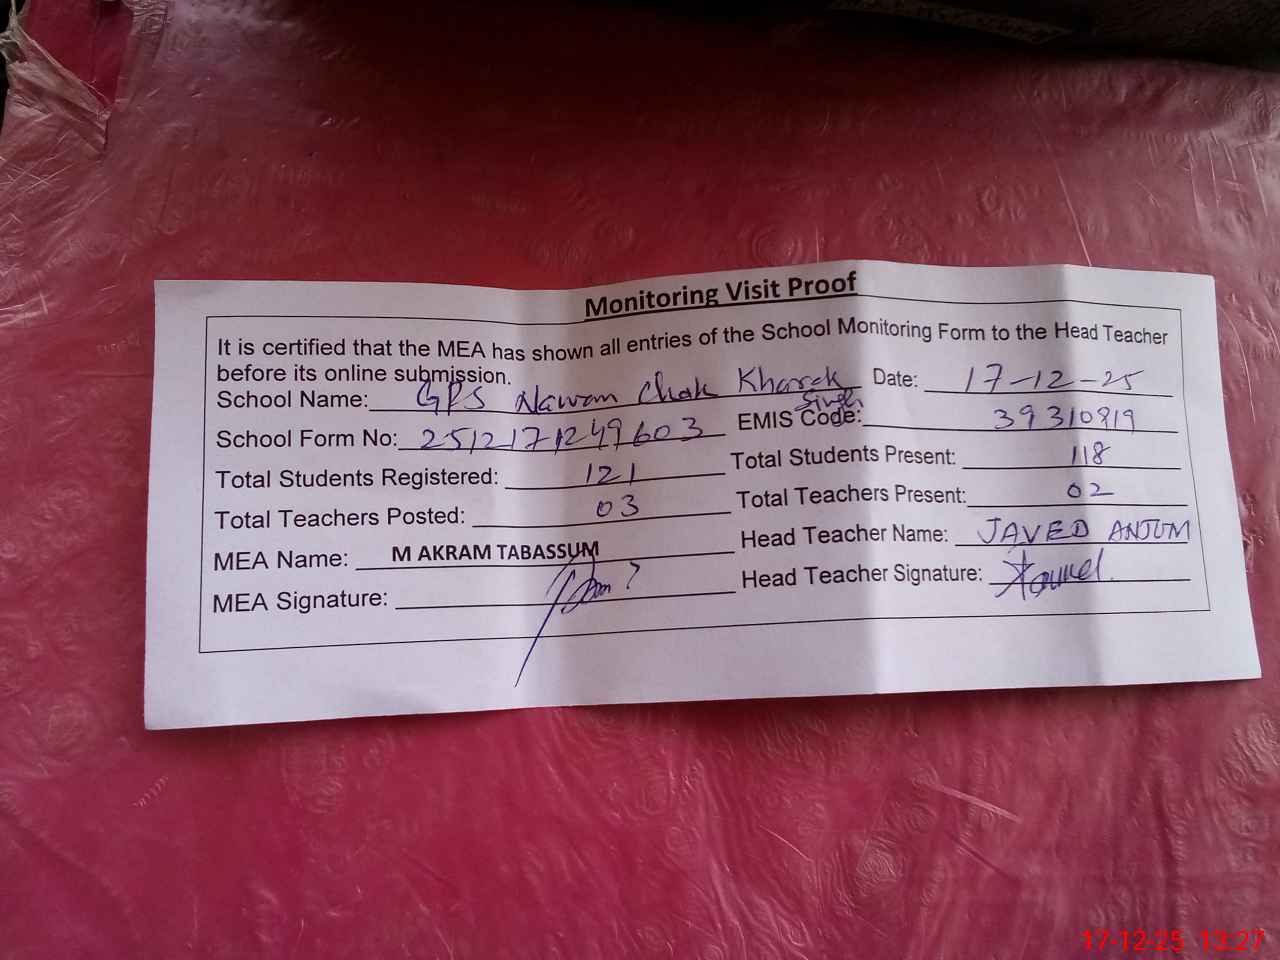 Monitoring Visit Proof
It is certified that the MEA has shown all entries of the School Monitoring Form to the Head Teacher
before its online submission.
School Name: GPS Nawan Chak Kharak Singh Date: 17-12-25
School Form No: 2512171249603 EMIS Code: 39310819
Total Students Registered: 121 Total Students Present: 118
Total Teachers Posted: 03 Total Teachers Present: 02
MEA Name: M AKRAM TABASSUM Head Teacher Name: JAVED ANJUM
MEA Signature: Head Teacher Signature:
17-12-25 13:27